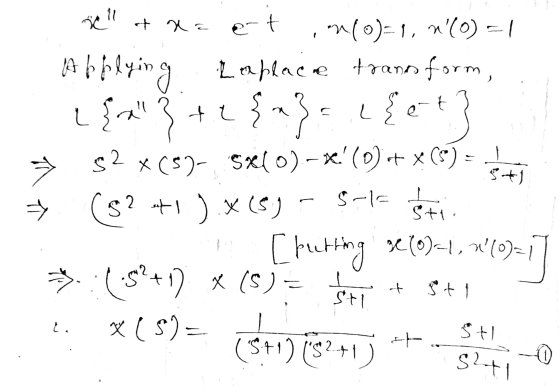 x'' + x = e^-t , x(0)=1, x'(0)=1
Applying Laplace transform,
L{x''} + L{x} = L{e^-t}
⇒ s² X(s) - sx(0) - x'(0) + X(s) = 1/(s+1)
⇒ (s²+1) X(s) - s-1 = 1/(s+1).
[putting x(0)=1, x'(0)=1]
⇒ (s²+1) X(s) = 1/(s+1) + s+1
∴ X(s) = 1/((s+1)(s²+1)) + (s+1)/(s²+1) —①